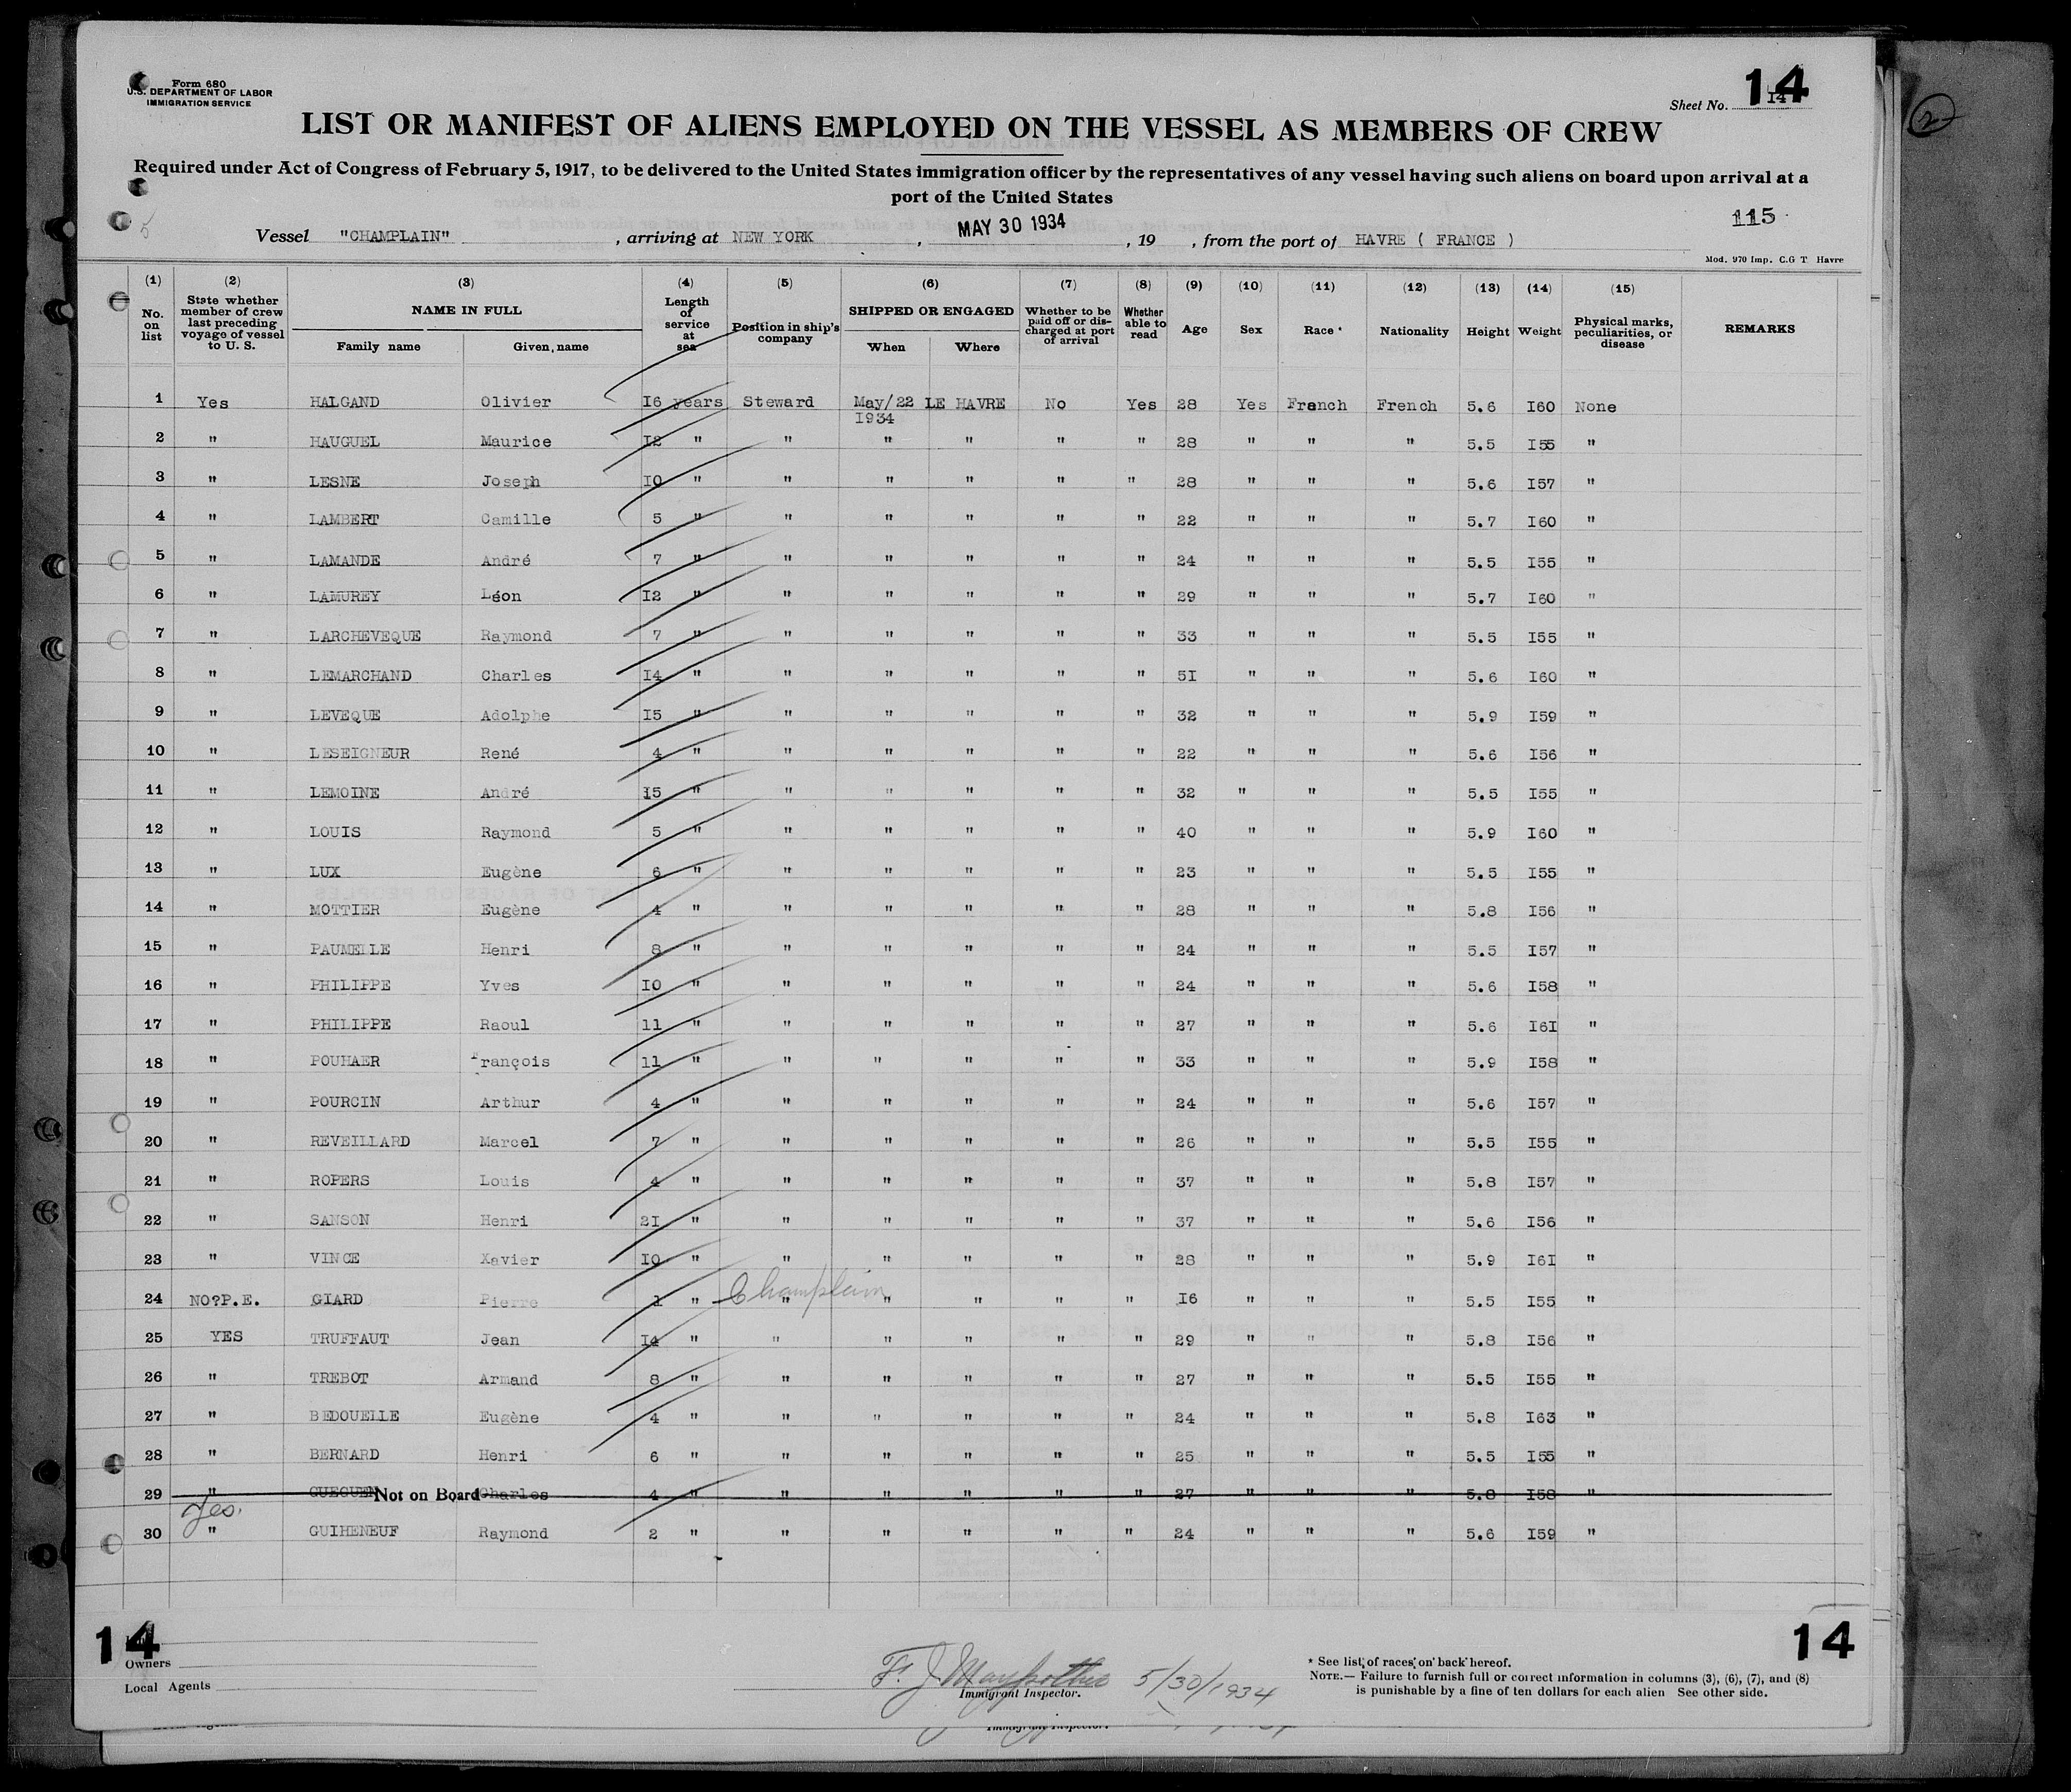 Form 680
U.S. DEPARTMENT OF LABOR
IMMIGRATION SERVICE
Sheet No. 14
14
2
LIST OR MANIFEST OF ALIENS EMPLOYED ON THE VESSEL AS MEMBERS OF CREW
Required under Act of Congress of February 5, 1917, to be delivered to the United States immigration officer by the representatives of any vessel having such aliens on board upon arrival at a
port of the United States
115
Vessel "CHAMPLAIN" , arriving at NEW YORK , MAY 30 1934 , 19 , from the port of HAVRE ( FRANCE )
Mod. 970 Imp. C.G T. Havre
(1) (2) (3) (4) (5) (6) (7) (8) (9) (10) (11) (12) (13) (14) (15)
No. on list State whether member of crew last preceding voyage of vessel to U. S. NAME IN FULL Family name Given name Length of service at sea Position in ship's company SHIPPED OR ENGAGED When Where Whether to be paid off or discharged at port of arrival Whether able to read Age Sex Race * Nationality Height Weight Physical marks, peculiarities, or disease REMARKS
1 Yes HALGAND Olivier I6 years Steward May/22 1934 LE HAVRE No Yes 28 Yes French French 5.6 I60 None
2 " HAUGUEL Maurice I2 " " " " " " 28 " " " 5.5 I55 "
3 " LESNE Joseph IO " " " " " " 28 " " " 5.6 I57 "
4 " LAMBERT Camille 5 " " " " " " 22 " " " 5.7 I60 "
5 " LAMANDE André 7 " " " " " " 24 " " " 5.5 I55 "
6 " LAMUREY Léon I2 " " " " " " 29 " " " 5.7 I60 "
7 " LARCHEVEQUE Raymond 7 " " " " " " 33 " " " 5.5 I55 "
8 " LEMARCHAND Charles I4 " " " " " " 5I " " " 5.6 I60 "
9 " LEVEQUE Adolphe I5 " " " " " " 32 " " " 5.9 I59 "
10 " LESEIGNEUR René 4 " " " " " " 22 " " " 5.6 I56 "
11 " LEMOINE André I5 " " " " " " 32 " " " 5.5 I55 "
12 " LOUIS Raymond 5 " " " " " " 40 " " " 5.9 I60 "
13 " LUX Eugène 6 " " " " " " 23 " " " 5.5 I55 "
14 " MOTTIER Eugène 4 " " " " " " 28 " " " 5.8 I56 "
15 " PAUMELLE Henri 8 " " " " " " 24 " " " 5.5 I57 "
16 " PHILIPPE Yves IO " " " " " " 24 " " " 5.6 I58 "
17 " PHILIPPE Raoul 11 " " " " " " 27 " " " 5.6 I6I "
18 " POUHAER François 11 " " " " " " 33 " " " 5.9 I58 "
19 " POURCIN Arthur 4 " " " " " " 24 " " " 5.6 I57 "
20 " REVEILLARD Marcel 7 " " " " " " 26 " " " 5.5 I55 "
21 " ROPERS Louis 4 " " " " " " 37 " " " 5.8 I57 "
22 " SANSON Henri 2I " " " " " " 37 " " " 5.6 I56 "
23 " VINCE Xavier IO " " " " " " 28 " " " 5.9 I6I "
Champlain
24 NO?P.E. GIARD Pierre 1 " " " " " " I6 " " " 5.5 I55 "
25 YES TRUFFAUT Jean I4 " " " " " " 29 " " " 5.8 I56 "
26 " TREBOT Armand 8 " " " " " " 27 " " " 5.5 I55 "
27 " BEDOUELLE Eugène 4 " " " " " " 24 " " " 5.8 I63 "
28 " BERNARD Henri 6 " " " " " " 25 " " " 5.5 I55 "
29 " GUEGUEN Not on Board Charles 4 " " " " " " 27 " " " 5.8 I58 "
Yes.
30 " GUIHENEUF Raymond 2 " " " " " " 24 " " " 5.6 I59 "
14
14
Owners
Local Agents
F. J. 5/30/1934
Immigrant Inspector.
* See list of races on back hereof.
NOTE.— Failure to furnish full or correct information in columns (3), (6), (7), and (8)
is punishable by a fine of ten dollars for each alien See other side.
Immigrant Inspector.